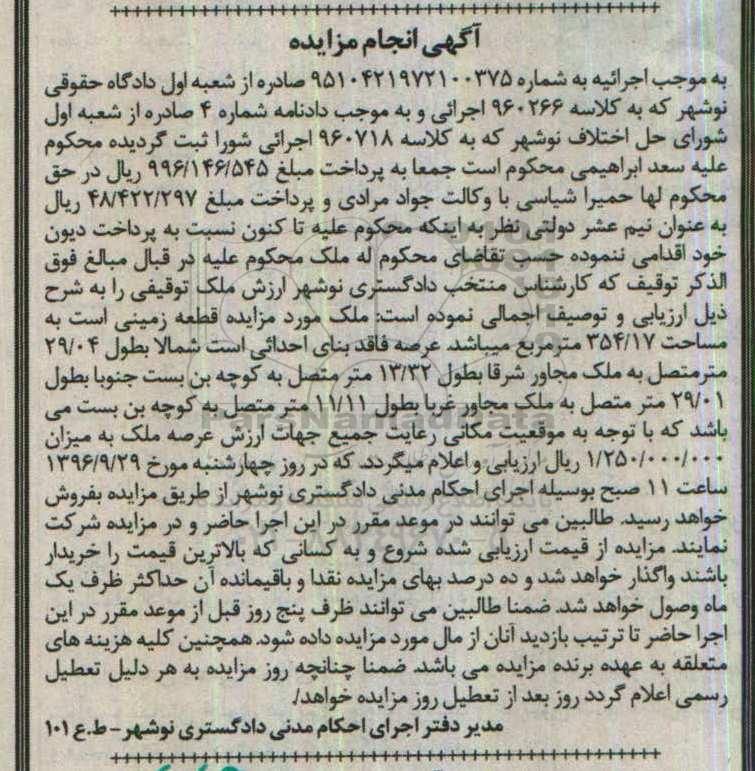 آگهی انجام مزایده
به موجب اجرائیه به شماره ۹۵۱۰۴۲۱۹۷۲۱۰۰۳۷۵ صادره از شعبه اول دادگاه حقوقی
نوشهر که به کلاسه ۹۶۰۲۶۶ اجرائی و به موجب دادنامه شماره ۴ صادره از شعبه اول
شورای حل اختلاف نوشهر که به کلاسه ۹۶۰۷۱۸ اجرائی شورا ثبت گردیده محکوم
علیه سعد ابراهیمی محکوم است جمعا به پرداخت مبلغ ۹۹۶/۱۴۶/۵۴۵ ریال در حق
محکوم لها حمیرا شیاسی با وکالت جواد مرادی و پرداخت مبلغ ۴۸/۴۲۲/۲۹۷ ریال
به عنوان نیم عشر دولتی نظر به اینکه محکوم علیه تا کنون نسبت به پرداخت دیون
خود اقدامی ننموده حسب تقاضای محکوم له ملک محکوم علیه در قبال مبالغ فوق
الذکر توقیف که کارشناس منتخب دادگستری نوشهر ارزش ملک توقیفی را به شرح
ذیل ارزیابی و توصیف اجمالی نموده است: ملک مورد مزایده قطعه زمینی است به
مساحت ۳۵۴/۱۷ مترمربع میباشد. عرصه فاقد بنای احداثی است شمالا بطول ۲۹/۰۴
مترمتصل به ملک مجاور شرقا بطول ۱۳/۳۲ متر متصل به کوچه بن بست جنوبا بطول
۲۹/۰۱ متر متصل به ملک مجاور غربا بطول ۱۱/۱۱ متر متصل به کوچه بن بست می
باشد که با توجه به موقعیت مکانی رعایت جمیع جهات ارزش عرصه ملک به میزان
۱/۲۵۰/۰۰۰/۰۰۰ ریال ارزیابی و اعلام میگردد. که در روز چهارشنبه مورخ ۱۳۹۶/۹/۲۹
ساعت ۱۱ صبح بوسیله اجرای احکام مدنی دادگستری نوشهر از طریق مزایده بفروش
خواهد رسید. طالبین می توانند در موعد مقرر در این اجرا حاضر و در مزایده شرکت
نمایند. مزایده از قیمت ارزیابی شده شروع و به کسانی که بالاترین قیمت را خریدار
باشند واگذار خواهد شد و ده درصد بهای مزایده نقدا و باقیمانده آن حداکثر ظرف یک
ماه وصول خواهد شد. ضمنا طالبین می توانند ظرف پنج روز قبل از موعد مقرر در این
اجرا حاضر تا ترتیب بازدید آنان از مال مورد مزایده داده شود. همچنین کلیه هزینه های
متعلقه به عهده برنده مزایده می باشد. ضمنا چنانچه روز مزایده به هر دلیل تعطیل
رسمی اعلام گردد روز بعد از تعطیل روز مزایده خواهد/.
مدیر دفتر اجرای احکام مدنی دادگستری نوشهر - ط.ع ۱۰۱